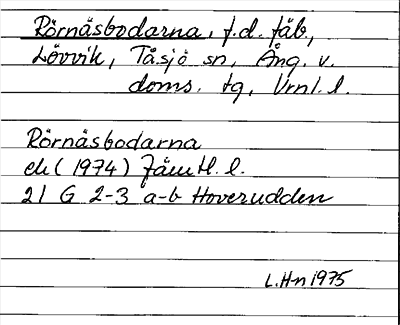 Rörnäsbodarna, f.d. fäb.,
Lövvik, Tåsjö sn, Ång. v.
doms. tg, Vrnl. l.
Rörnäsbodarna
ek (1974) Jämtl. l.
21 G 2-3 a-b Hoverudden
L.H-n 1975